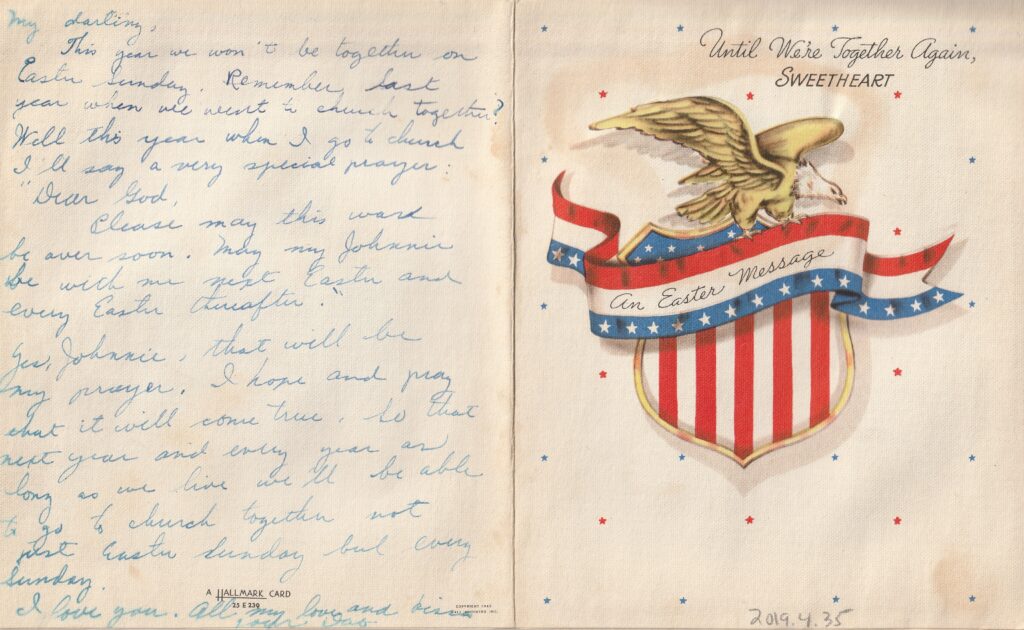 My darling,
This year we won't be together on
Easter Sunday. Remember, last
year when we went to church together?
Well this year when I go to church
I'll say a very special prayer:
"Dear God,
Please may this ward
be over soon. May my Johnnie
be with me next Easter and
every Easter thereafter."
Yes, Johnnie, that will be
my prayer. I hope and pray
that it will come true. So that
next year and every year as
long as we live we'll be able
to go to church together not
just Easter Sunday but every
Sunday.
A HALLMARK CARD
25 E 239
COPYRIGHT
I love you. All my love and
Until We're Together Again,
SWEETHEART
An Easter Message
2019.4.35